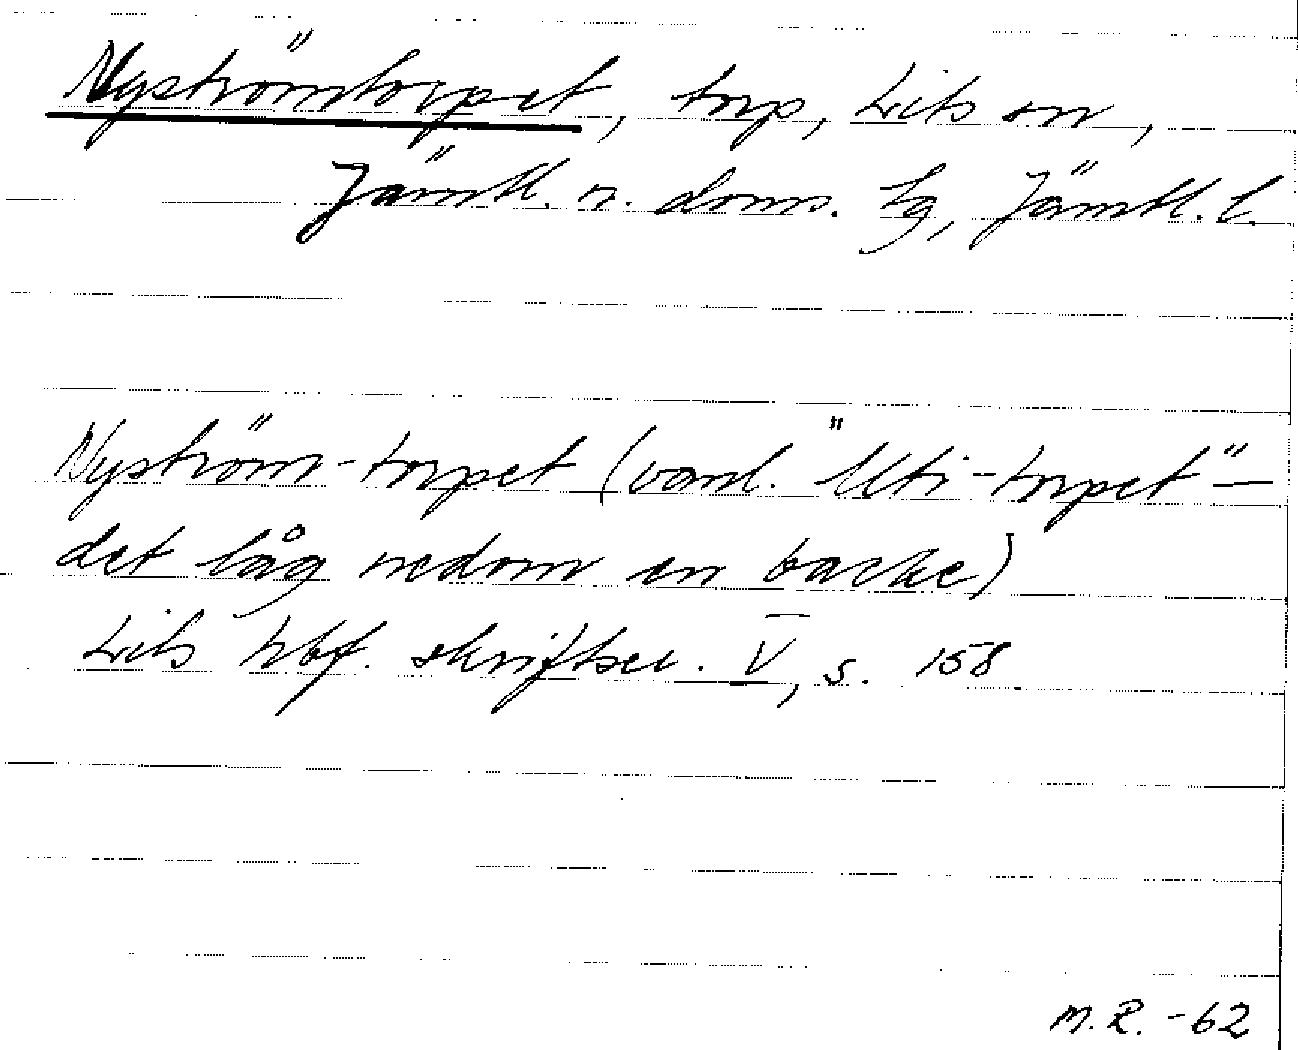 Nyströmtorpet, torp, Lits sn,
Jämtl. n. doms. tg, Jämtl. l.
Nyström-torpet (vanl. "Uti-torpet" –
det låg nedom en backe)
Lits hbf. skriftser. V, s. 158
M. R. -62